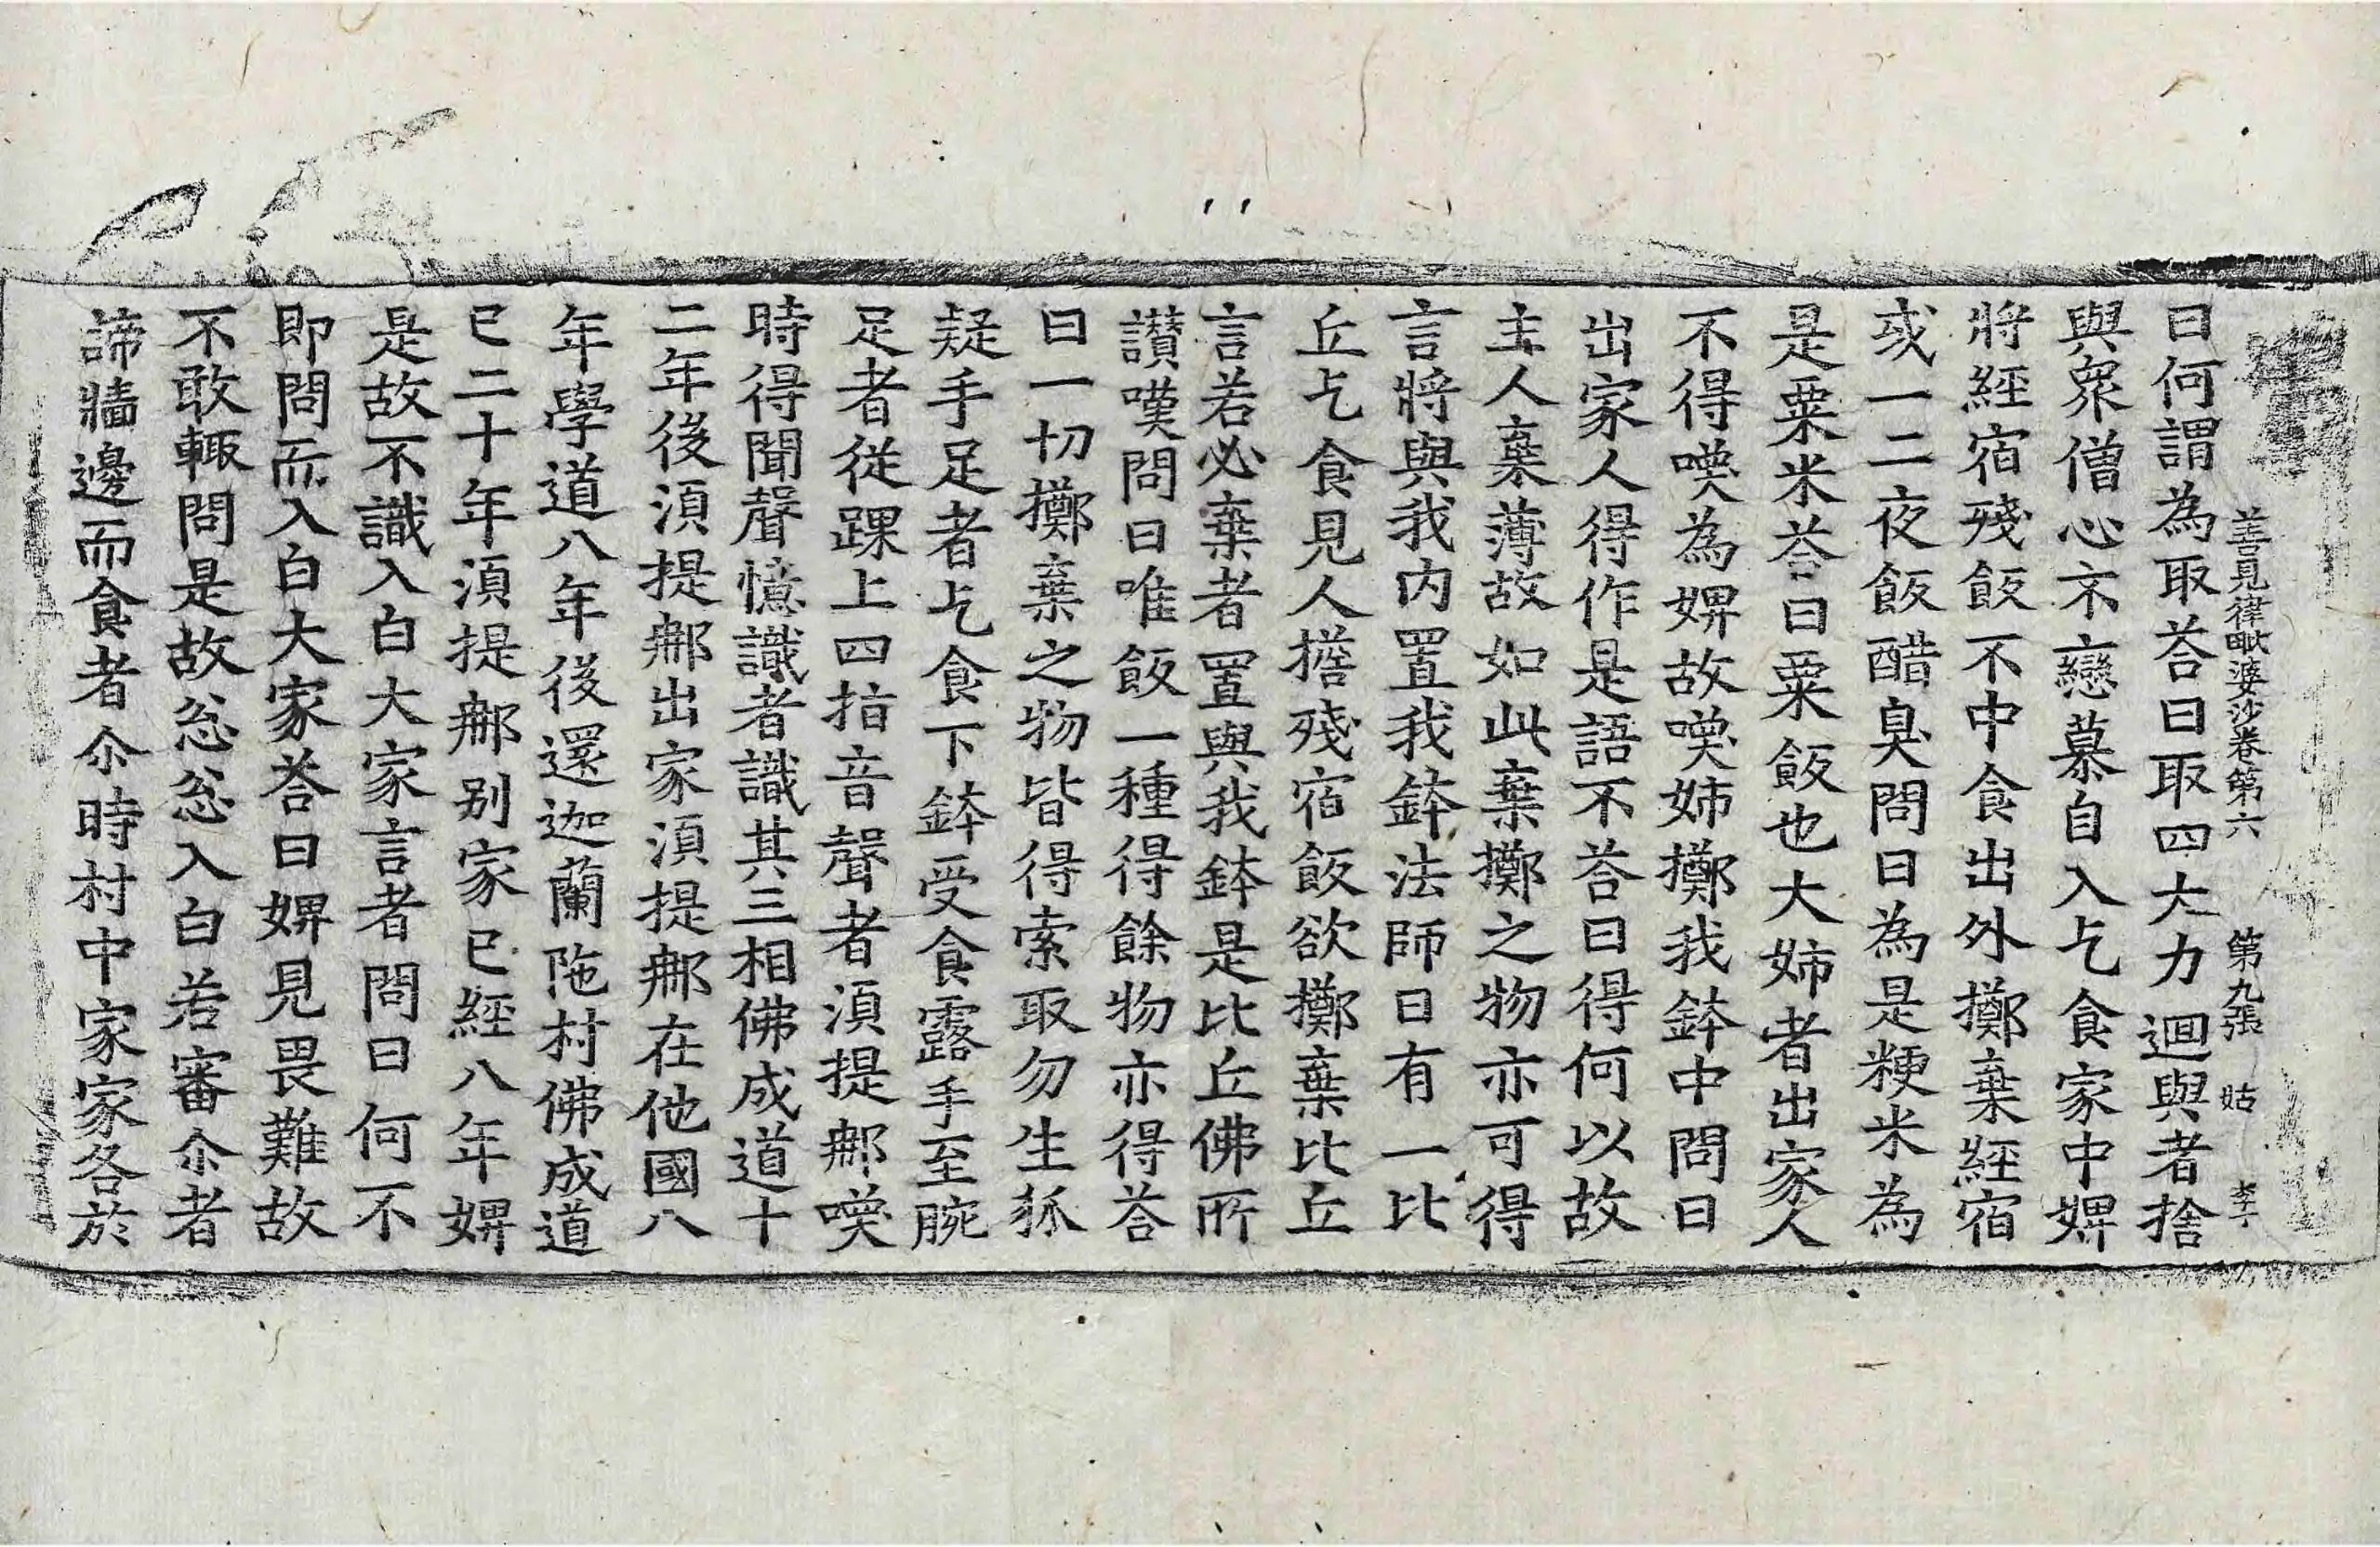 善見律毗婆沙卷第六 第九張 姑 李一
曰何謂為取荅曰取四大力迴與者捨
與衆僧心不戀慕自入乞食家中婢
將經宿殘飯不中食出外擲棄經宿
或一二夜飯醋臭問曰為是粳米為
是粟米荅曰粟飯也大姉者出家人
不得喚為婢故喚姉擲我鉢中問曰
出家人得作是語不荅曰得何以故
主人棄薄故如此棄擲之物亦可得
言將與我内置我鉢法師曰有一比
丘乞食見人擔殘宿飯欲擲棄比丘
言若必棄者置與我鉢是比丘佛所
讃嘆問曰唯飯一種得餘物亦得荅
曰一切擲棄之物皆得索取勿生狐
疑手足者乞食下鉢受食露手至腕
足者從踝上四指音聲者湏提郍喚
時得聞聲憶識者識其三相佛成道十
二年後湏提郍出家湏提郍在他國八
年學道八年後還迦蘭陁村佛成道
已二十年湏提郍别家已經八年婢
是故不識入白大家言者問曰何不
即問而入白大家荅曰婢見畏難故
不敢輙問是故怱怱入白若審尒者
諦牆邊而食者尒時村中家家各於